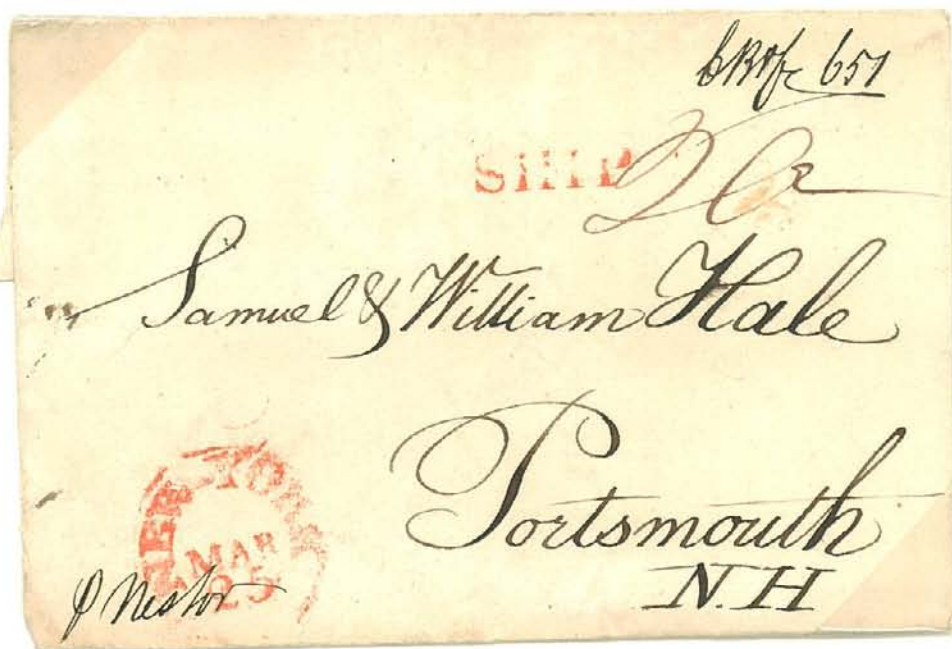 651
SHIP
Samuel & William Hale
Portsmouth
N.H
NEW YORK
MAR
25
p Nestor